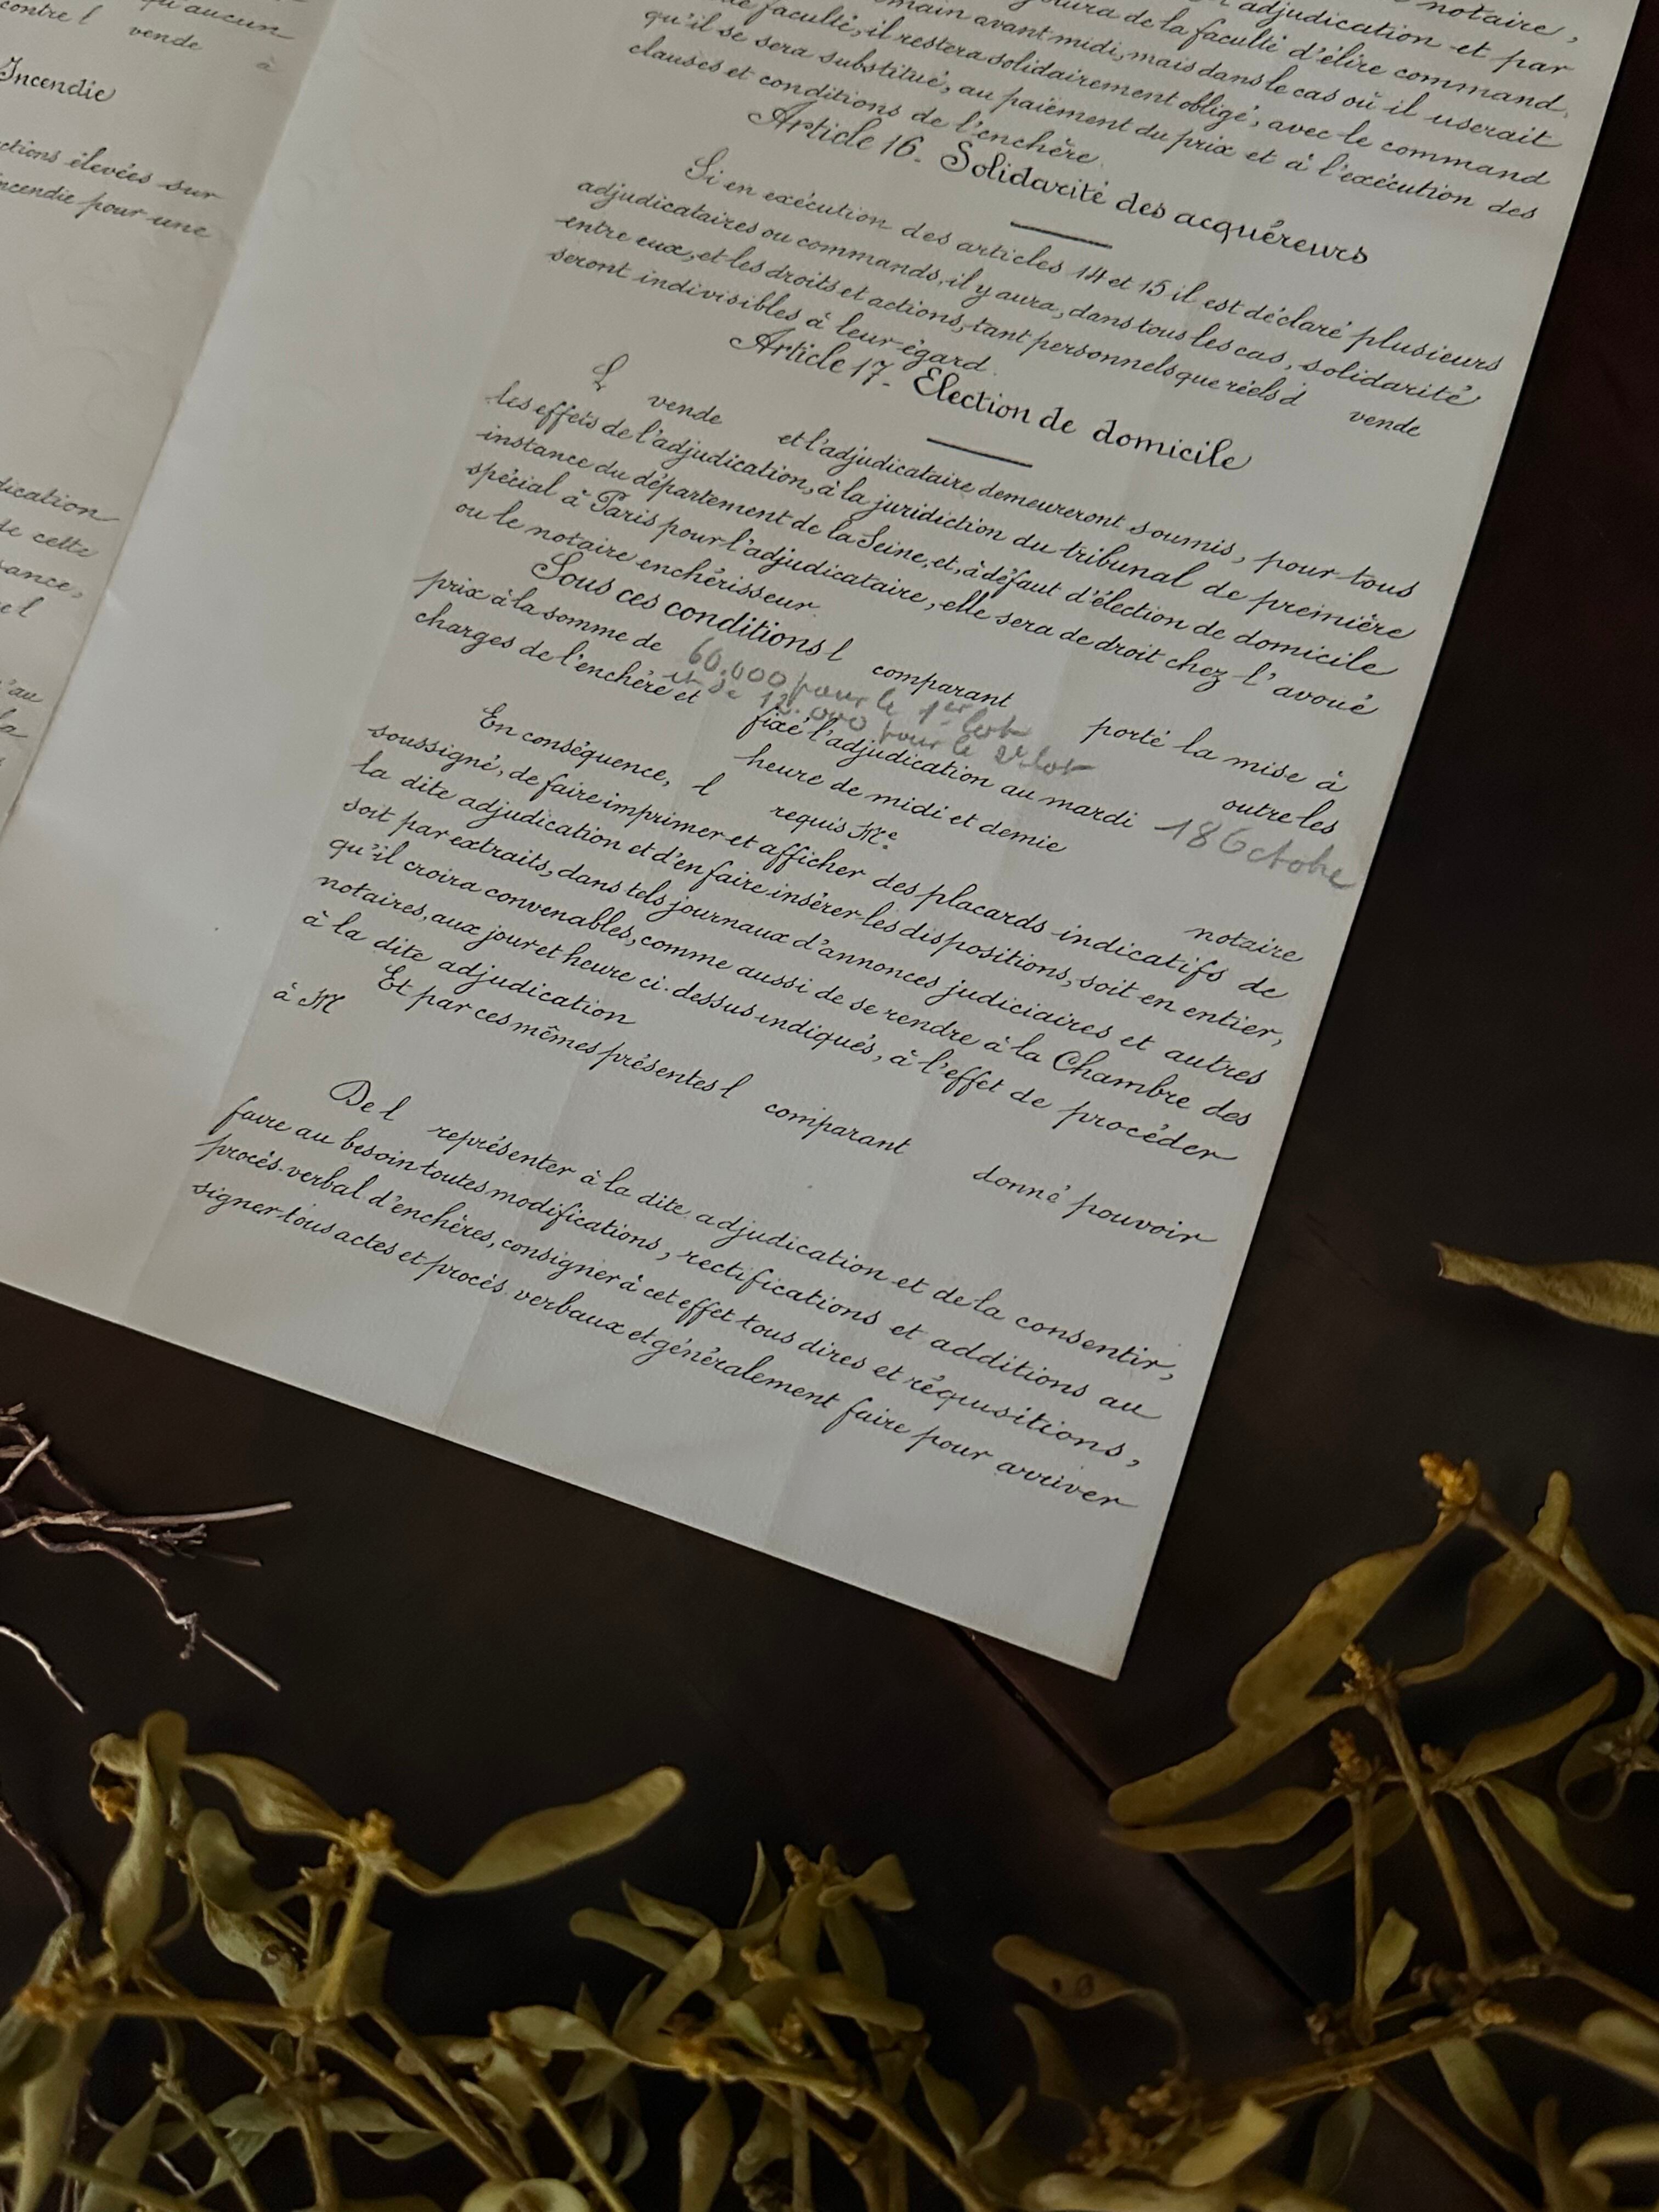 qu'aucun
contre l vende à
Incendie
ctions élevées sur
incendie pour une
dication
de cette
sance,
el
'au
la
notaire,
adjudication et par
de la faculté d'élire command,
main avant midi, mais dans le cas où il userait
faculté, il restera solidairement obligé, avec le command
qu'il se sera substitué, au paiement du prix et à l'exécution des
clauses et conditions de l'enchère.
Article 16. Solidarité des acquéreurs
Si en exécution des articles 14 et 15 il est déclaré plusieurs
adjudicataires ou commands, il y aura, dans tous les cas, solidarité
entre eux, et les droits et actions, tant personnels que réels d vende
seront indivisibles à leur égard.
Article 17. Election de domicile
L vende et l'adjudicataire demeureront soumis, pour tous
les effets de l'adjudication, à la juridiction du tribunal de première
instance du département de la Seine, et, à défaut d'élection de domicile
spécial à Paris pour l'adjudicataire, elle sera de droit chez l'avoué
ou le notaire enchérisseur.
Sous ces conditions l comparant porté la mise à
prix à la somme de 60.000 pour le 1er lot outre les
et de 12.000 pour le 2e lot
charges de l'enchère et fixé l'adjudication au mardi 18 Octobre
heure de midi et demie
En conséquence, l requis Me. notaire
soussigné, de faire imprimer et afficher des placards indicatifs de
la dite adjudication et d'en faire insérer les dispositions, soit en entier,
soit par extraits, dans tels journaux d'annonces judiciaires et autres
qu'il croira convenables, comme aussi de se rendre à la Chambre des
notaires, aux jour et heure ci-dessus indiqués, à l'effet de procéder
à la dite adjudication
Et par ces mêmes présentes l comparant donné pouvoir
à M
De l représenter à la dite adjudication et de la consentir,
faire au besoin toutes modifications, rectifications et additions au
procès-verbal d'enchères, consigner à cet effet tous dires et réquisitions,
signer tous actes et procès-verbaux et généralement faire pour arriver